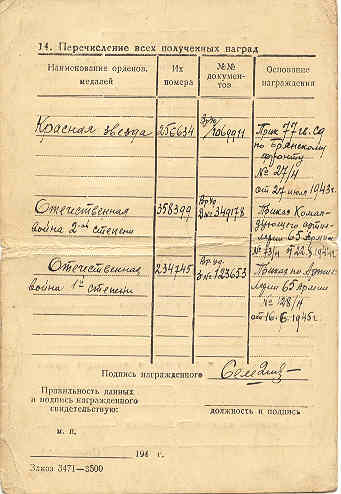 14. Перечисление всех полученных наград
Наименование орденов, медалей
Их номера
№№ документов
Основание награждения
Красная звезда
256634
Пр. 77 гв. сд
по Брянскому
фронту
№ 27/н
от 27 июля 1943 г.
Отечественная
война 2-ой степени
358399
№ 349178
Приказ Коман-
дующего артил-
лерии 65 Армии
№ 73/н
Отечественная
война 1ой степени
234745
№ 123653
Приказ по Артил-
лерии 65 Армии
№ 128/н
от 16. 6. 1945 г.
Подпись награжденного
Правильность данных
и подпись награжденного
свидетельствую:
должность и подпись
м. п.
194 г.
Заказ 3471—3500